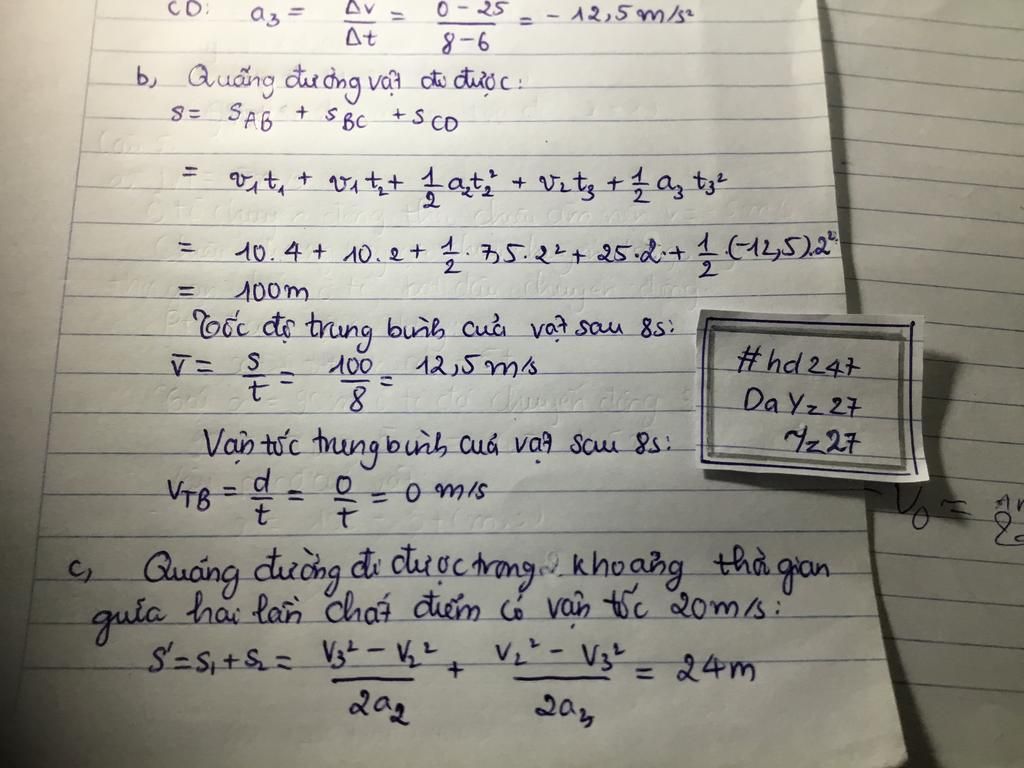 CD: a₃ = Δv/Δt = 0-25/8-6 = -12,5 m/s²
b, Quãng đường vật đi được:
s = s_AB + s_BC + s_CD
= v₁t₁ + v₁t₂ + 1/2 a₂t₂² + v₂t₃ + 1/2 a₃ t₃²
= 10.4 + 10.2 + 1/2 . 7,5.2² + 25.2 + 1/2 .(-12,5).2²
= 100m
Tốc độ trung bình của vật sau 8s:
v̄ = s/t = 100/8 = 12,5 m/s
Vận tốc trung bình của vật sau 8s:
v_TB = d/t = 0/t = 0 m/s
c, Quãng đường đi được trong khoảng thời gian
giữa hai lần chất điểm có vận tốc 20m/s:
S' = S₁ + S₂ = V₃² - V₂²/2a₂ + V₂² - V₃²/2a₃ = 24m
#hd247
DaY = 27
V₀ =